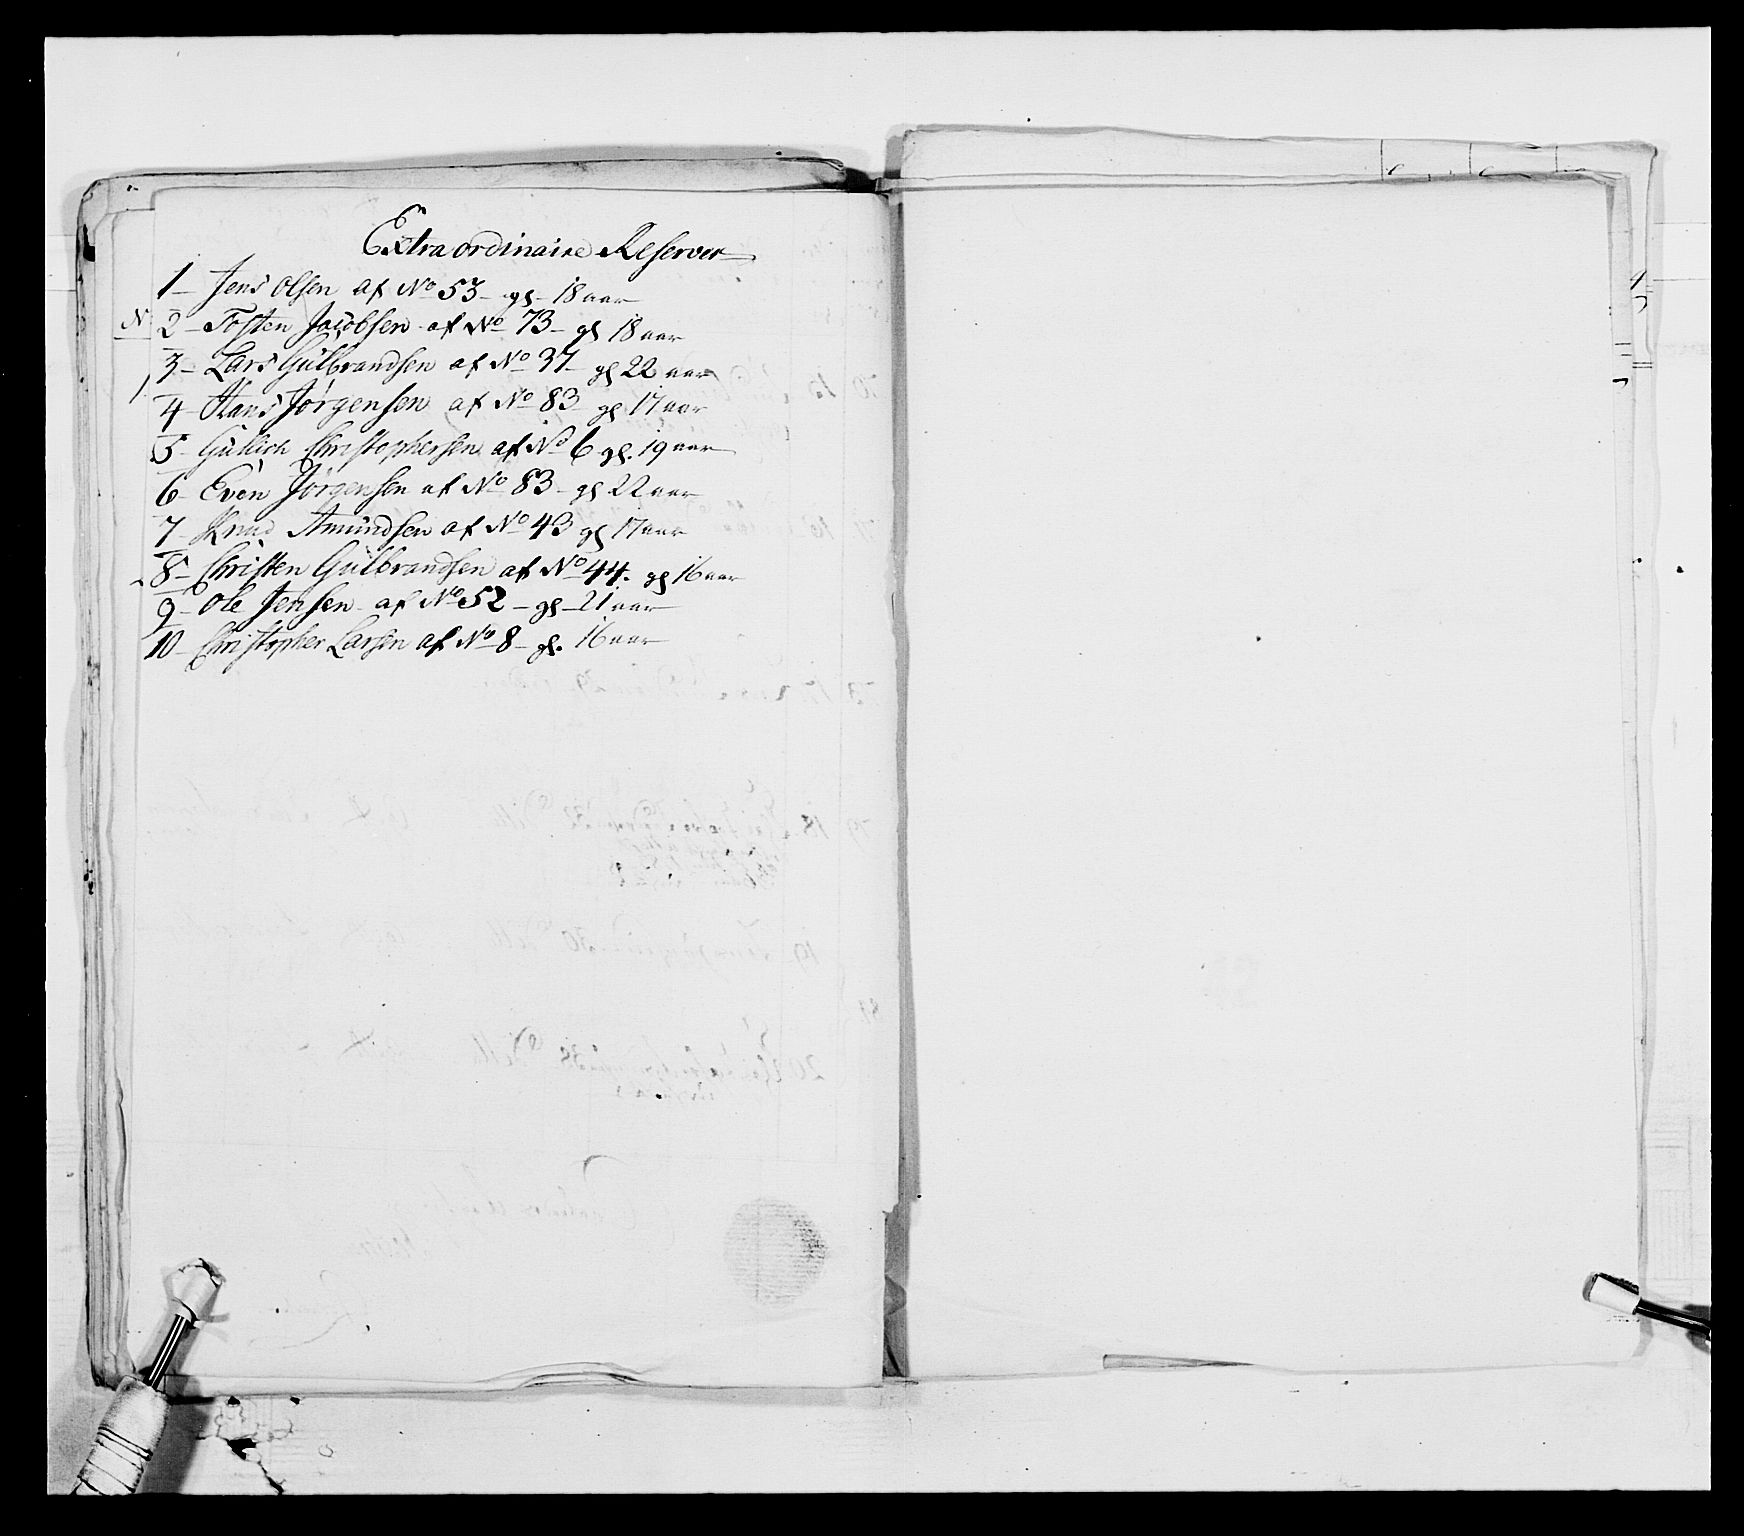 Extraordinaire Reserver
1 - Jens Olsen af No 53 - gl - 18 aar
N 2 - Tosten Jacobsen af No 73 - gl 18 aar
3 - Lars Gülbrandsen af No 37 - gl 22 aar
4 - Hans Jørgensen af No 83 - gl 17 aar
5 - Güllich Christophersen af No 6 gl. 19 aar
6 - Even Jørgensen af No 83 - gl 22 aar
7 - Knud Amündsen af No 43 gl 17 aar
8 - Christen Gülbrandsen af No 44. gl 16 aar
9 - Ole Jensen - af No 52 - gl - 21 aar
10 - Christopher Larsen af No 8 - gl. 16 aar